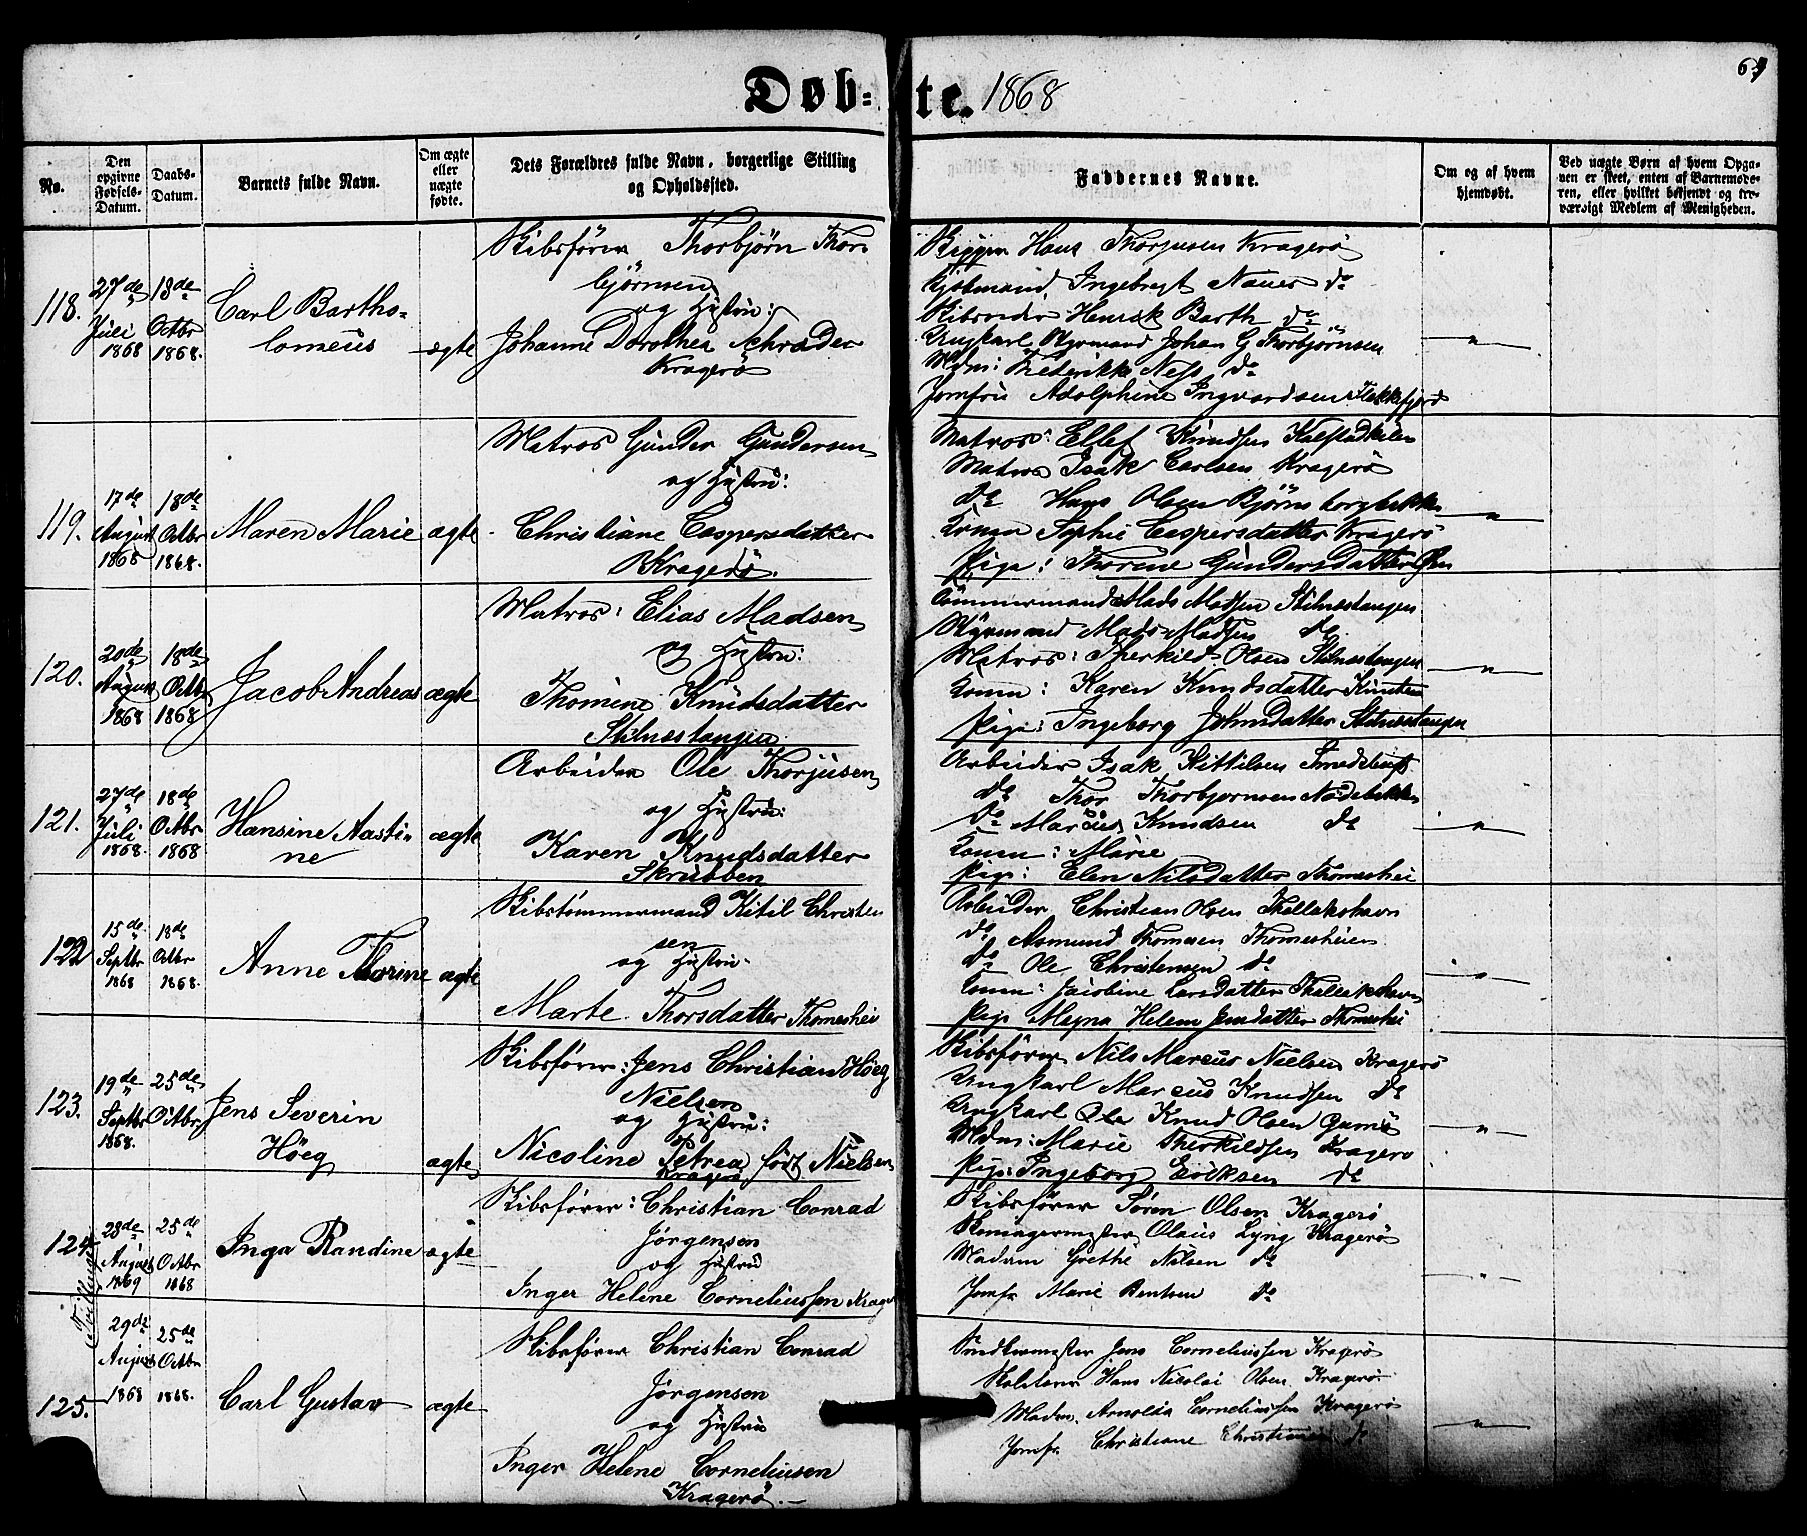 Døb-te. 1868
No.
Den opgivne Fødsels-Datum.
Daabs-Datum.
Barnets fulde Navn.
Om ægte eller uægte fødte.
Dets Forældres fulde Navn, borgerlige Stilling
og Opholdssted.
Faddernes Navne.
Om og af hvem
hjemdøbt.
Ved uægte Børn af hvem Opga-
ven er skeet, enten af Barnemode-
ren, eller hvilket bekjendt og tro-
værdigt Medlem af Menigheden.
118.
27de Juli 1868
18de Octbr 1868.
Carl Bartho-
lomeus
ægte
Skibsfører Thorbjørn Thor-
bjørnsen
og Hustru:
Johanne Dorothea Schrøder
Kragerø
Skipper Hans Thorjusen Kragerø
Kjøbmand Ingebregt Næues do
Skibsreder Henrik Barth do
Ungkarl Styrmand Johan G Thorbjørnsen
Mdm: Frederikke Ness do
Jomfru Adolphine Ingvardsen Flekkefjord
119.
17de August 1868
18de Octbr 1868.
Maren Marie
ægte
Matros Gunder Gundersen
og Hustru:
Christiane Caspersdatter
Kragerø.
Matros: Ellef Knudsen Kalstadkilen
Matros Isak Carlsen Kragerø
do Hans Olsen Bjørnsborgbekken
Konen Sophie Caspersdatter Kragerø
Pige: Thorine Gundersdatter
120.
20de August 1868
18de Octbr 1868
Jacob Andreas
ægte
Matros: Elias Madsen
og Hustru:
Thomine Knudsdatter
Stilnestangen
Tømmermand Mads Madsen Stilnestangen
Styrmand Mads Madsen do
Matros: Therkild Olsen Stilnestangen
Konen: Karen Knudsdatter
Pige: Ingeborg Johnsdatter Stilnestangen
121.
27de Juli 1868.
18de Octbr 1868
Hansine Aasti-
ne
ægte
Arbeider Ole Thorjusen
og Hustru:
Karen Knudsdatter
Skrubben
Arbeider Isak Kittilsen Smedsbugt
do Thor Thorbjørnsen Nadebakken
do Marcus Knudsen do
Konen: Marie
Pige: Elen Nilsdatter Thomeshei
122
15de Septbr 1868
18de Octbr 1868.
Anne Thorine
ægte
Skibstømmermand Kitil Christen
sen
og Hustru.
Marte Thorsdatter Thomeshei
Arbeider Christian Olsen Thellakshavn
do Asmund Thomesen Thomesheien
do Ole Christensen do
Konen: Jacobine Larsdatter Thellakshavn
Pige Megna Helene Jensdatter Thomeshei
123.
19de Septbr 1868.
25de Octbr
Jens Severin
Höeg
ægte
Skibsfører: Jens Christian Höeg
Nielsen
og Hustru:
Nicoline Petrea født Nielsen
Kragerø
Skibsfører Nils Marcus Nielsen Kragerø
Ungkarl Marcus Knudsen do
Ungkarl Ole Knud Olsen Gumø
Mdm: Marie Therkildsen Kragerø
Pige: Ingeborg Eriksen do
124
Tvillinger
28de August 1869
25de Octbr 1868
Inga Randine
ægte
Skibsfører: Christian Conrad
Jörgensen
og Hustru
Inger Helene Corneliussen Kragerø
Skibsfører Søren Olsen Kragerø
Olaus Lyng Kragerø
Madam Grethe Nilsen do
Jomfr Marie Bentsen do
125.
29de August 1868
25de Octbr 1868.
Carl Gustav
ægte
Skibsfører Christian Conrad
Jørgensen
og Hustru
Inger Helene Corneliusen
Kragerø.
Snedkermester Jens Corneliussen Kragerø
Hans Nicolai Olsen Kragerø
Madm. Arnolda Corneliussen Kragerø
Jomfr. Christiane do